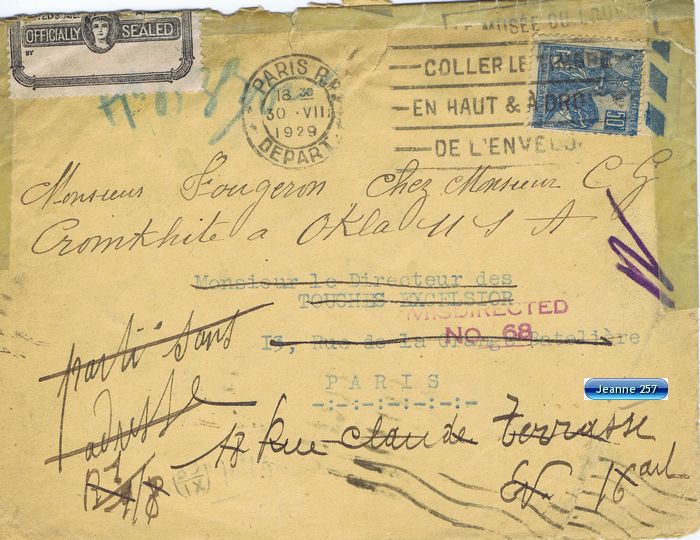 OFFICIALLY SEALED
BY
PARIS R.P.
18 30
30 · VII
1929
DEPART
MUSÉE DU LOUV
COLLER LE TIMBRE
EN HAUT & A DROI
DE L'ENVELO
50
Monsieur Fougeron Chez Monsieur C G
Cromkhite a Okla U S A
Monsieur le Directeur des
TOUCHES EXCELSIOR
MISDIRECTED
NO. 68
13, Rue de la Grange Batelière
PARIS
-:-:-:-:-:-:-
parti sans
adresse
Jeanne 257
18 Rue Claude Terrasse